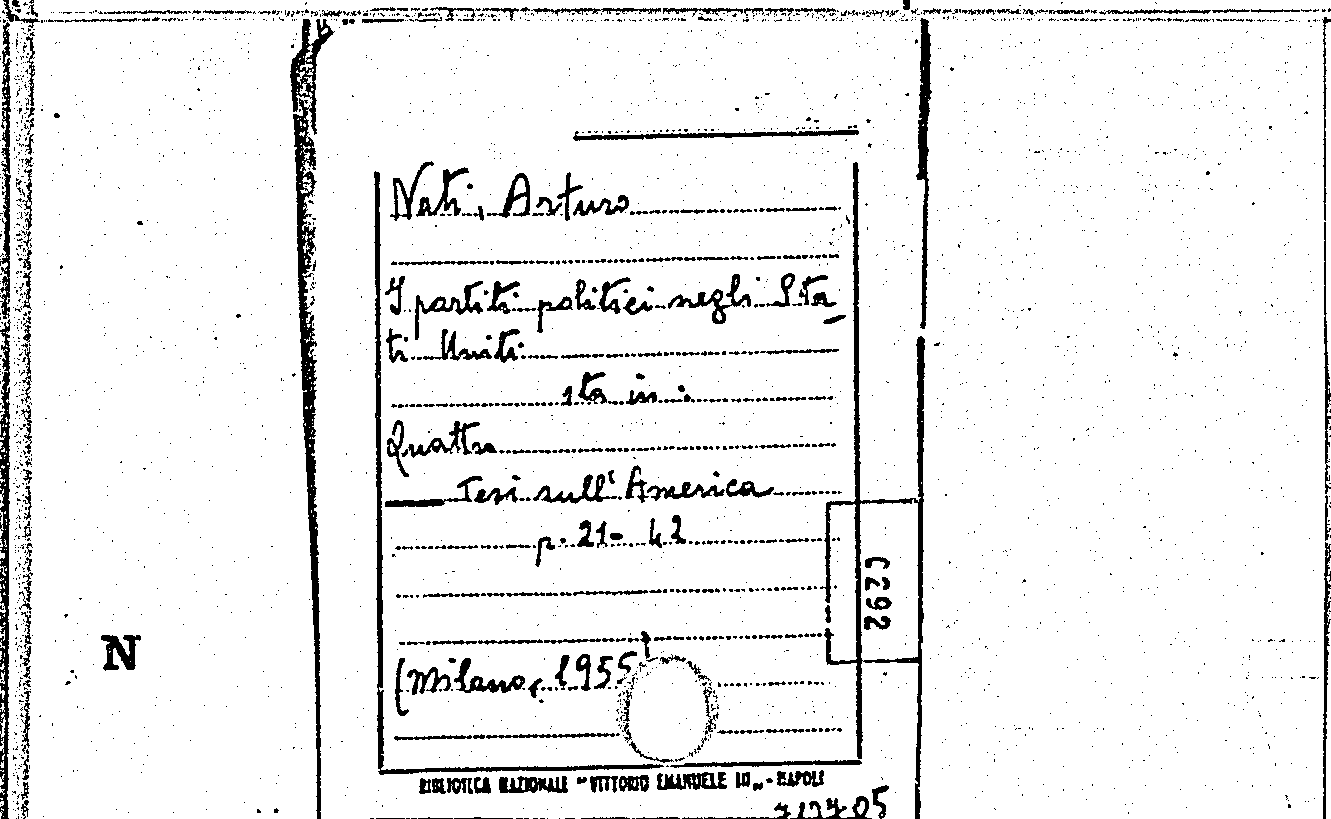 Nati, Arturo
I partiti politici negli Sta
ti Uniti
sta in :
Quattro
Tesi sull'America
p. 21- 42
C292
N
(Milano, 1955)
BIBLIOTECA NAZIONALE "VITTORIO EMANUELE III„ - NAPOLI